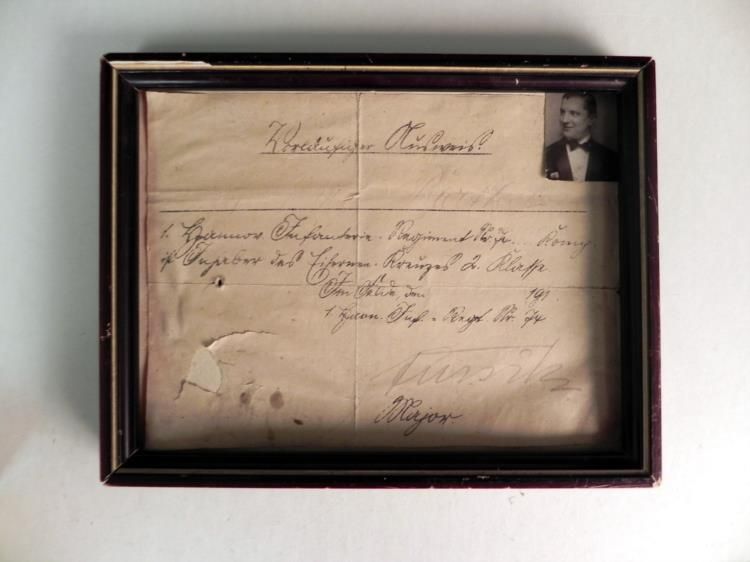 Vorläufiger Ausweis.
1. Hannov. Infanterie-Regiment Nr. 74. ... Komp.
ist Inhaber des Eisernen-Kreuzes 2. Klasse.
Im Felde, den 191.
1. Hann. Inf.-Regt. Nr. 74
Major.